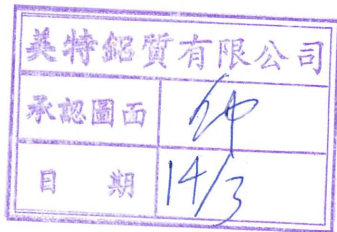 美特鋁質有限公司
承認圖面
日期 14/3